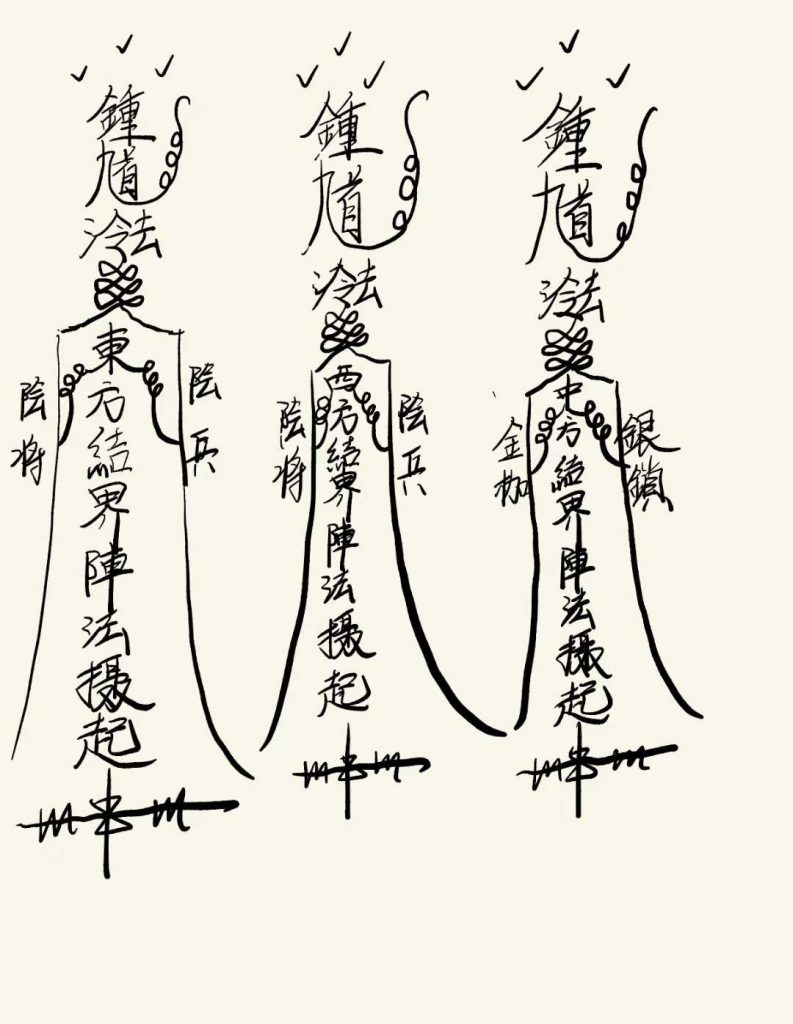 鍾馗
冷法
東方結界陣法攝起
陰將
陰兵
鍾馗
冷法
西方結界陣法攝起
陰將
陰兵
鍾馗
冷法
中方結界陣法攝起
金枷
銀鎖